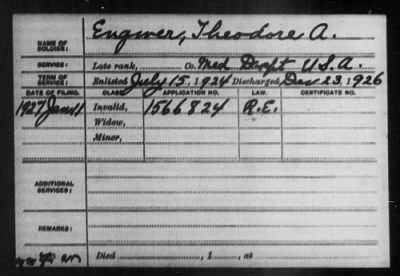 Engwer, Theodore A.
NAME OF SOLDIER:
SERVICE: Late rank, Co. Med Deptt U.S.A.
TERM OF SERVICE: Enlisted July 15, 1924 Discharged, Dec 23, 1926
DATE OF FILING. CLASS. APPLICATION NO. LAW. CERTIFICATE NO.
1927 Jan 11 Invalid, 1566824 R.E.
Widow,
Minor,
ADDITIONAL SERVICES:
REMARKS:
Died , 1 , at